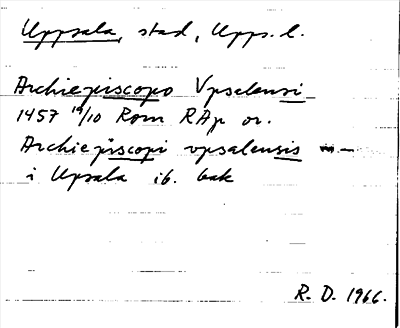 Uppsala, stad, Upps. l.
Archiepiscopo Vpsalensi
1457 19/10 Rom RAp or.
Archiepiscopi vpsalensis
i Upsala ib. bak
R. D. 1966.